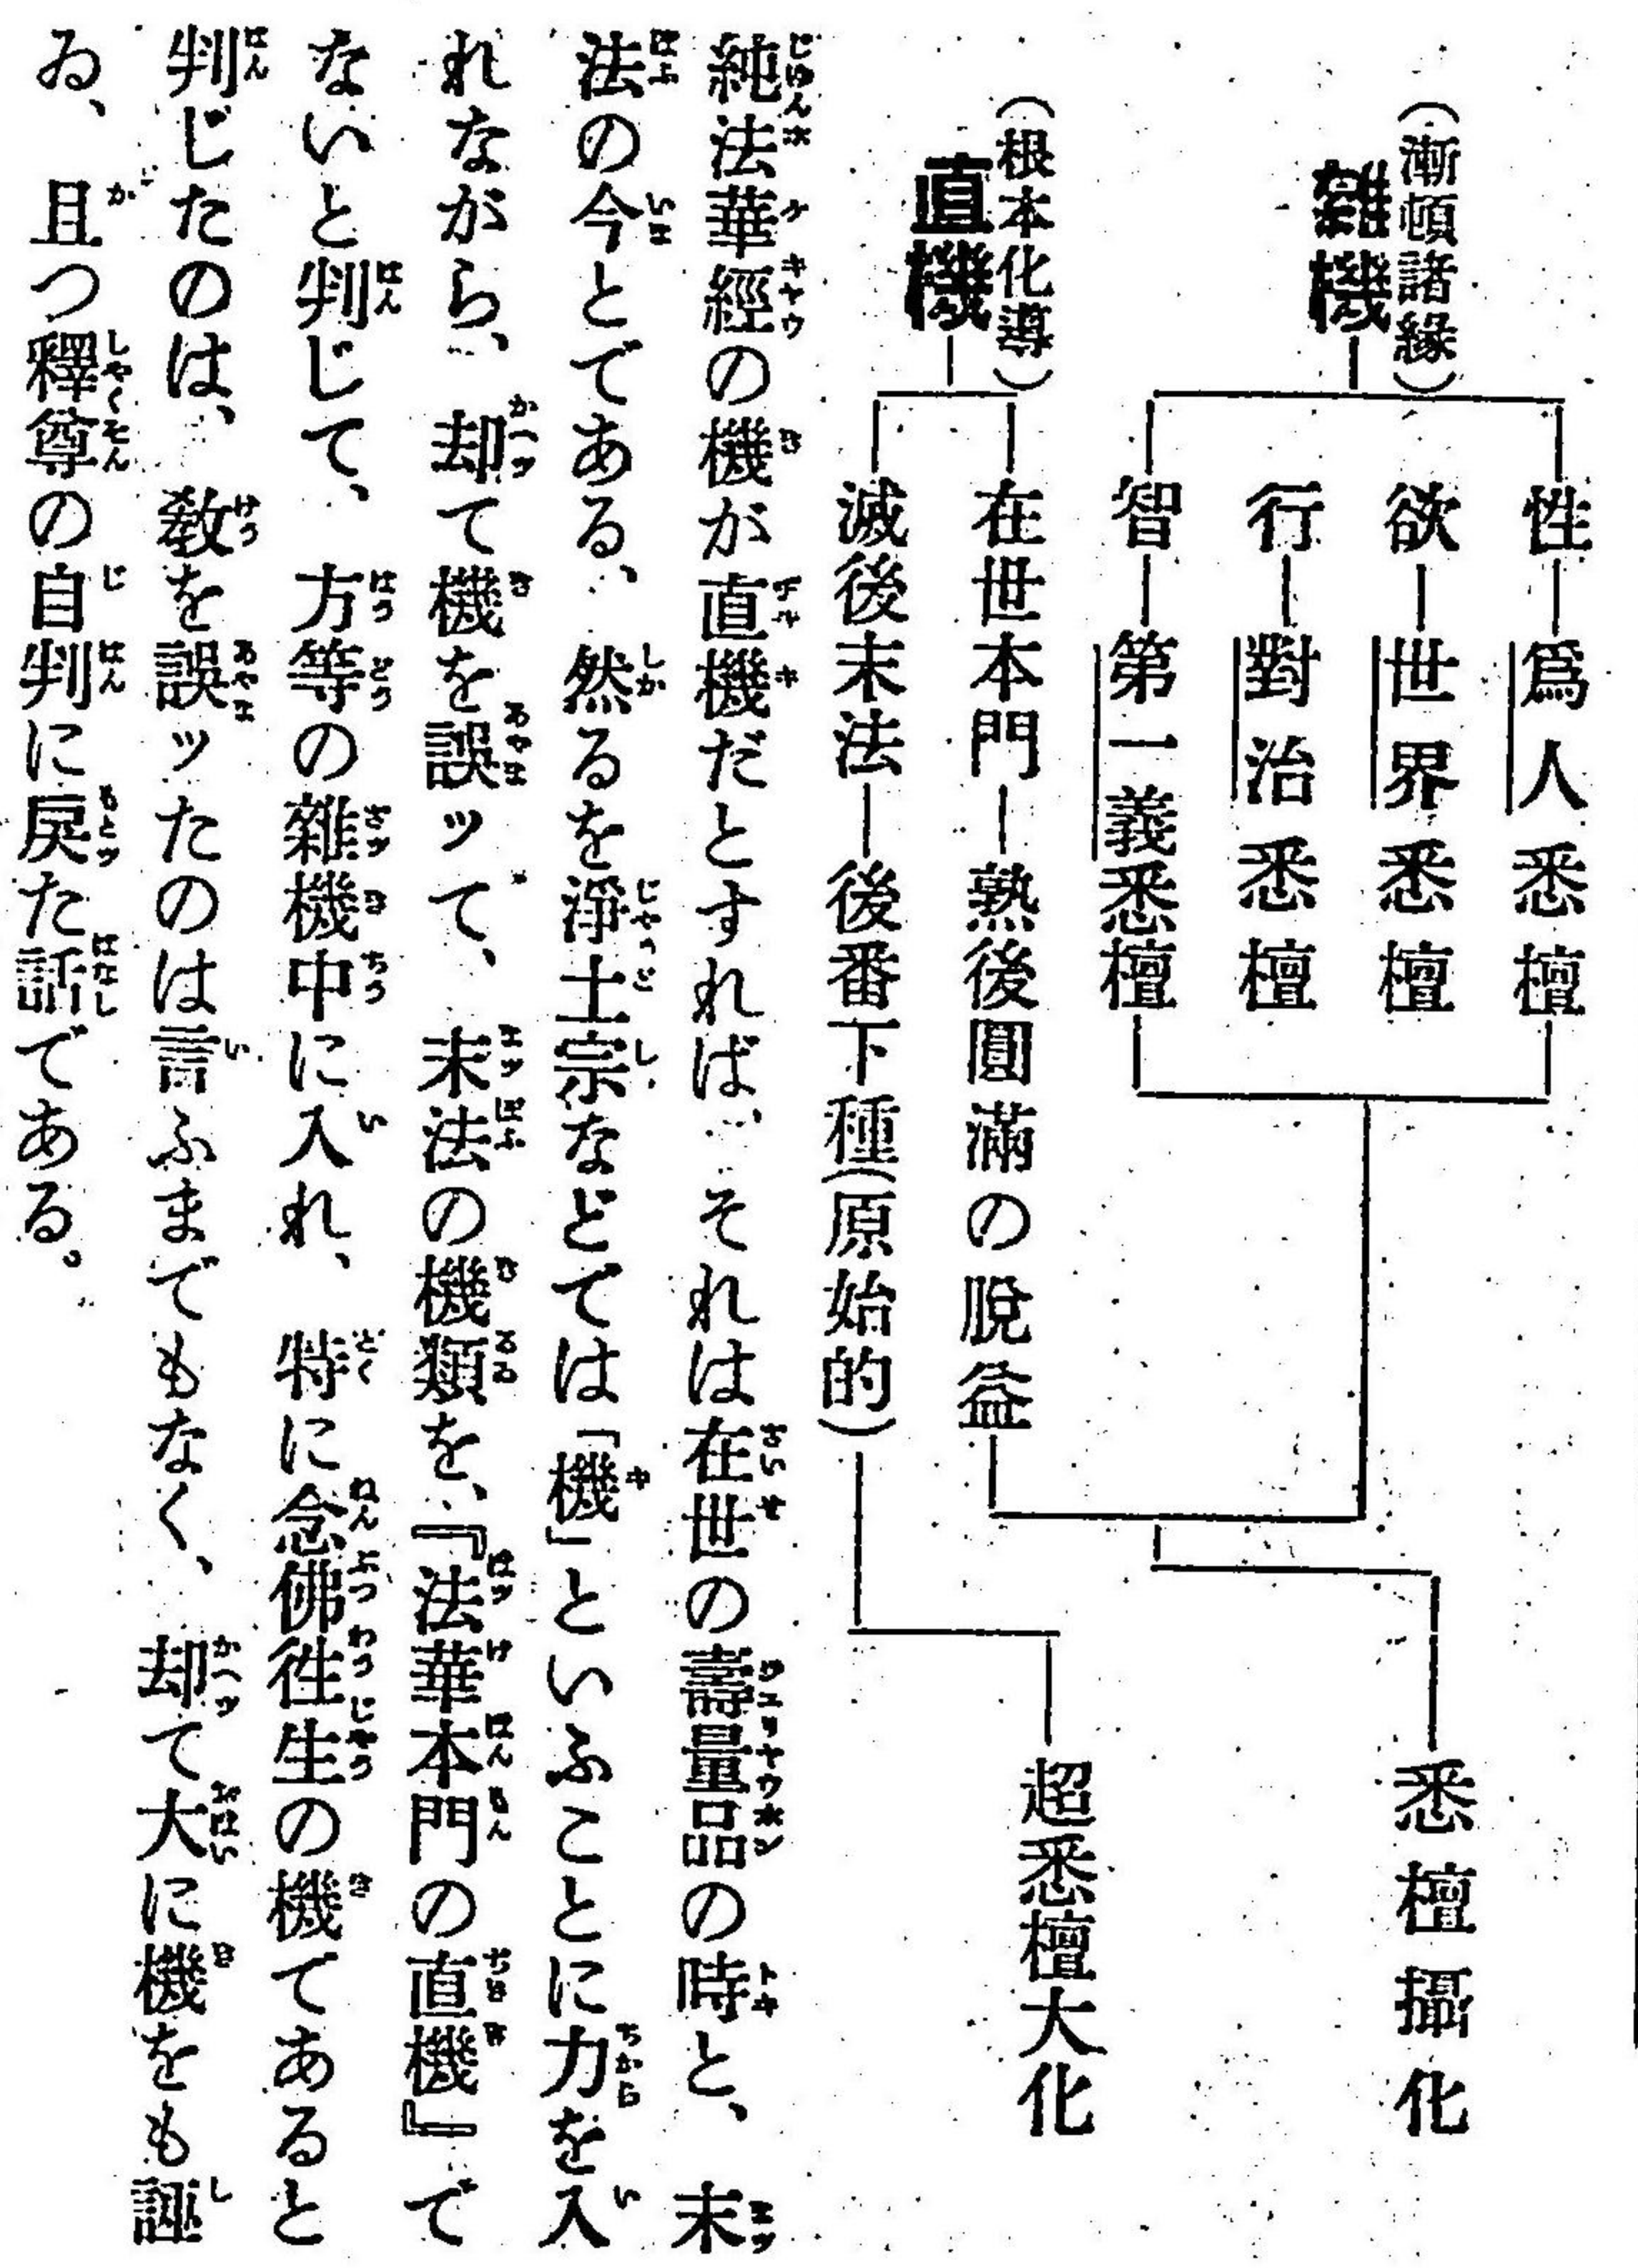 (漸頓諸緣)
雜機
性―爲人悉檀
欲―世界悉檀
行―對治悉檀
智―第一義悉檀
悉檀攝化
(根本化導)
直機
在世本門―熟後圓滿の脫益
滅後末法―後番下種(原始的)
超悉檀大化
純法華經の機が直機だとすれば、それは在世の壽量品の時と、末
法の今とである、然るを淨土宗などでは「機」といふことに力を入
れながら、却て機を誤ッて、末法の機類を、『法華本門の直機』で
ないと判じて、方等の雜機中に入れ、特に念佛徃生の機てあると
判じたのは、敎を誤ッたのは言ふまでもなく、却て大に機をも誣
ゐ、且つ釋尊の自判に戾た話である。